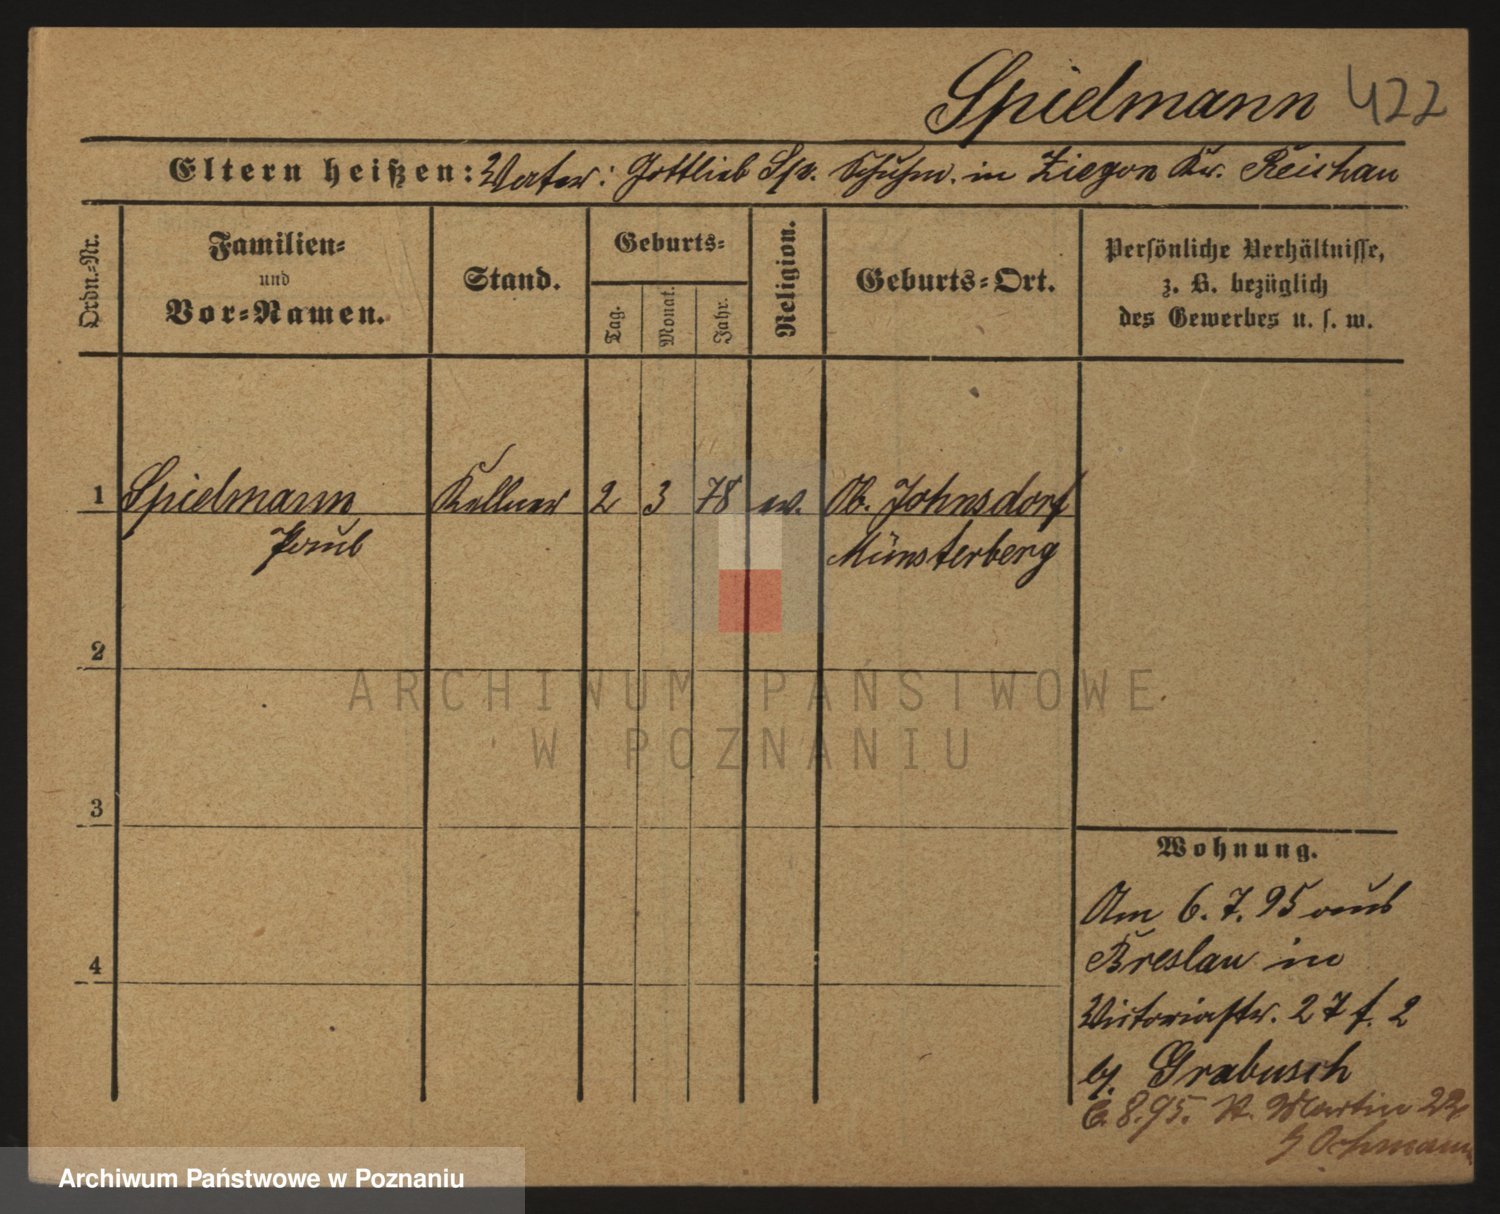 Spielmann 422
Eltern heißen: Vater: Gottlieb Sp. Schuhm. in Ziegon Kr. Reichau
Ordn.-Nr.
Familien-
und
Vor-Namen.
Stand.
Geburts-
Tag.
Monat.
Jahr.
Religion.
Geburts-Ort.
Persönliche Verhältnisse,
z. B. bezüglich
des Gewerbes u. s. w.
1 Spielmann Kellner 2 3 78 ev. Ob. Johnsdorf
Paul Münsterberg
2
3
4
Wohnung.
Am 6. 7. 95 aus
Breslau in
Victoriastr. 27 f. 2
bj Grabusch
6. 8. 95. St. Martin
Ochmann
ARCHIWUM PAŃSTWOWE
W POZNANIU
Archiwum Państwowe w Poznaniu